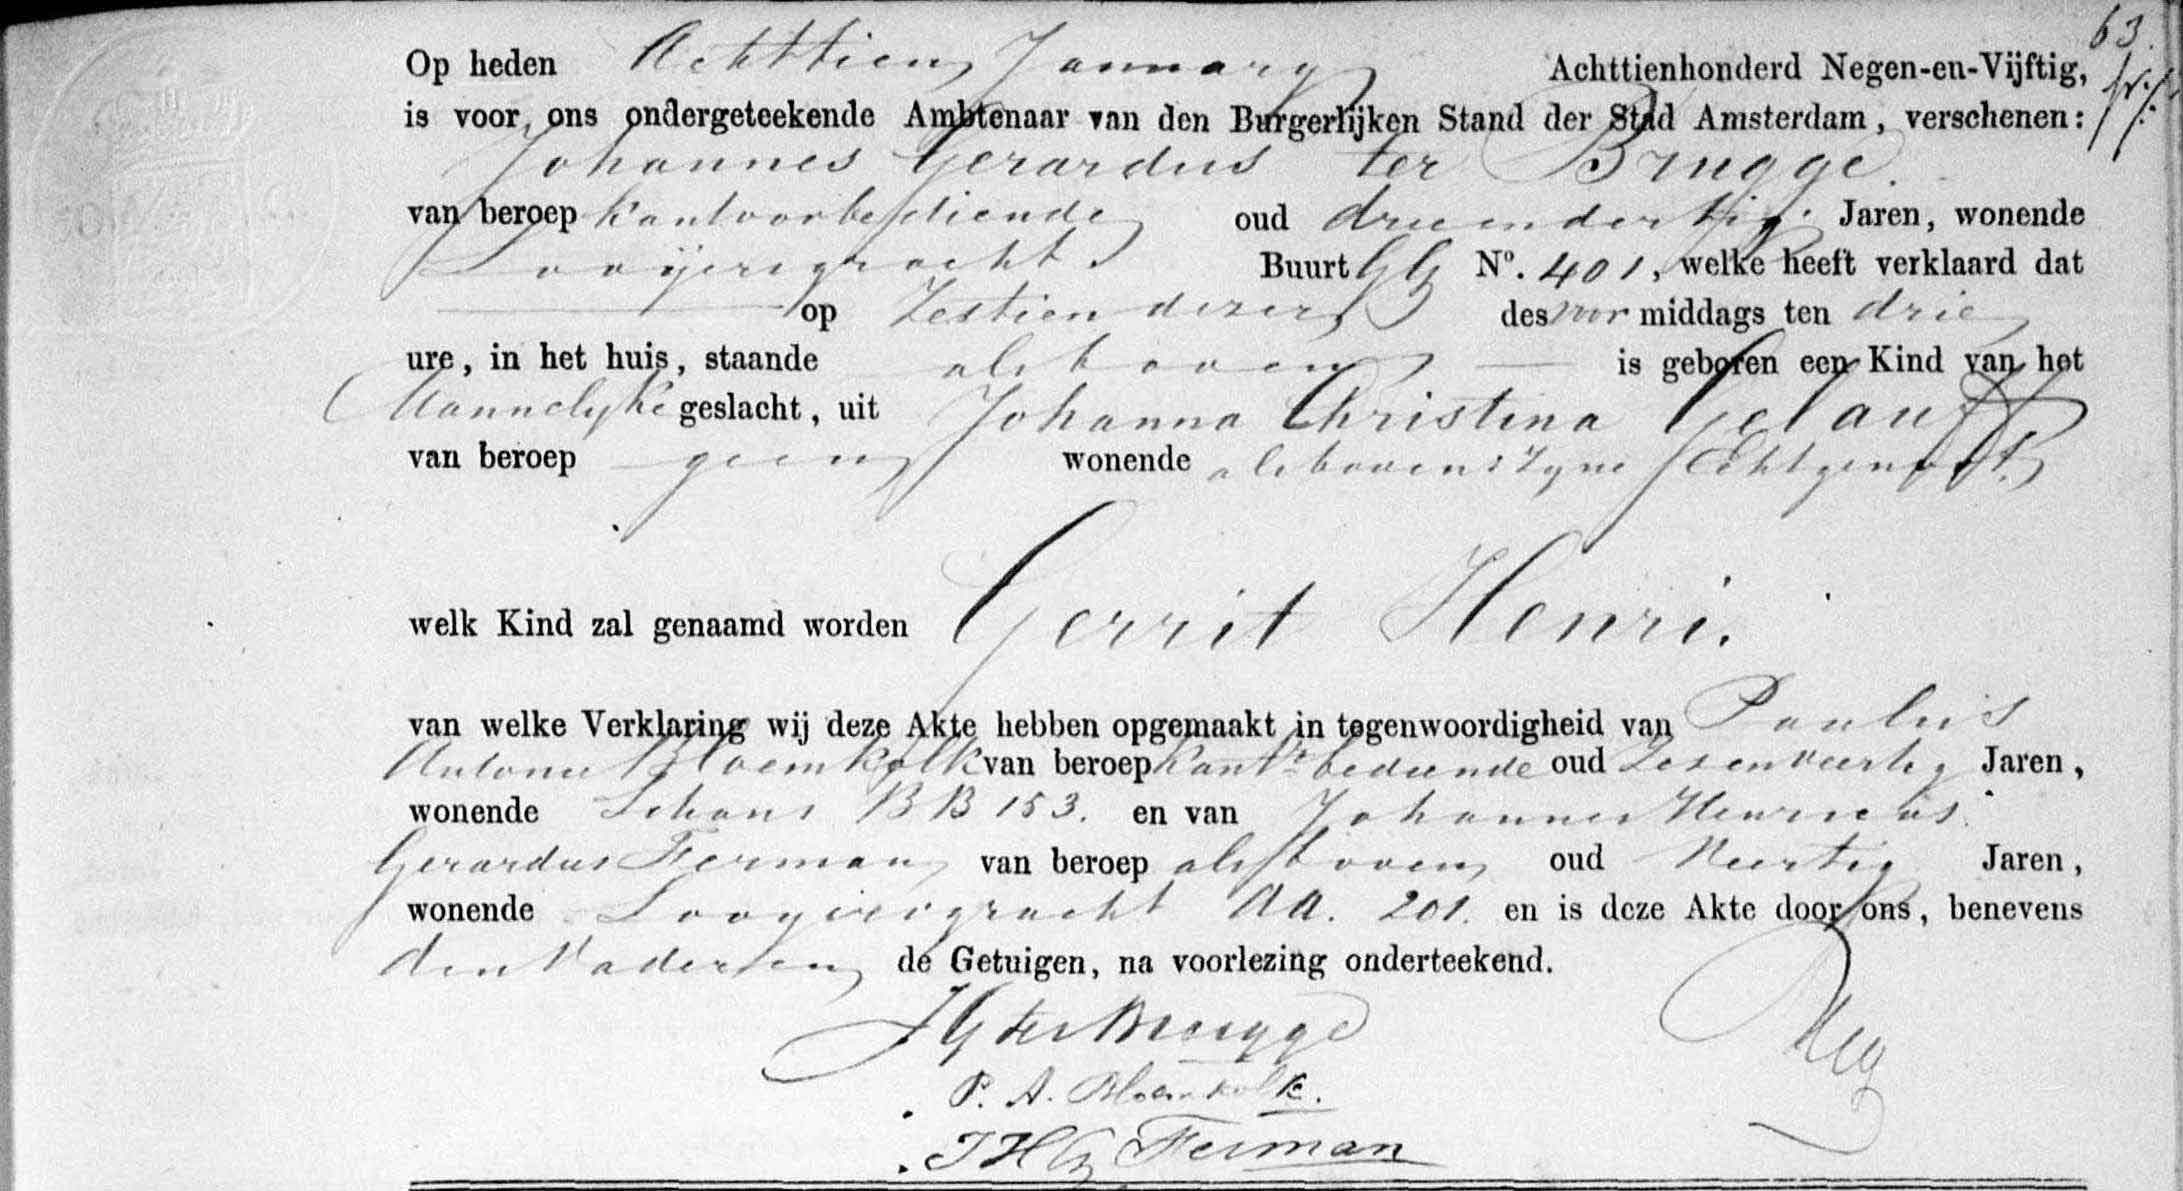 63.
Op heden Achttien January Achttienhonderd Negen-en-Vijftig,
is voor ons ondergeteekende Ambtenaar van den Burgerlijken Stand der Stad Amsterdam, verschenen:
Johannes Gerardus ter Brugge.
van beroep Kantoorbediende oud drieendertig Jaren, wonende
Looijersgracht Buurt GG No. 401, welke heeft verklaard dat
op Zestien dezer des voor middags ten drie
ure, in het huis, staande als boven is geboren een Kind van het
Mannelyke geslacht, uit Johanna Christina Gelauff
van beroep geen wonende als boven: zyne Echtgenoot.
welk Kind zal genaamd worden Gerrit Henri.
van welke Verklaring wij deze Akte hebben opgemaakt in tegenwoordigheid van Paulus
Antonie Bloemkolk van beroep Kantr bediende oud Zesenveertig Jaren,
wonende Schans BB 153. en van Johannes Henricus
Gerardus Ferman van beroep als boven oud Veertig Jaren,
wonende Looyersgracht AA. 201. en is deze Akte door ons, benevens
den Vader en de Getuigen, na voorlezing onderteekend.
JG ter Brugge
P. A. Bloemkolk.
JHG Ferman